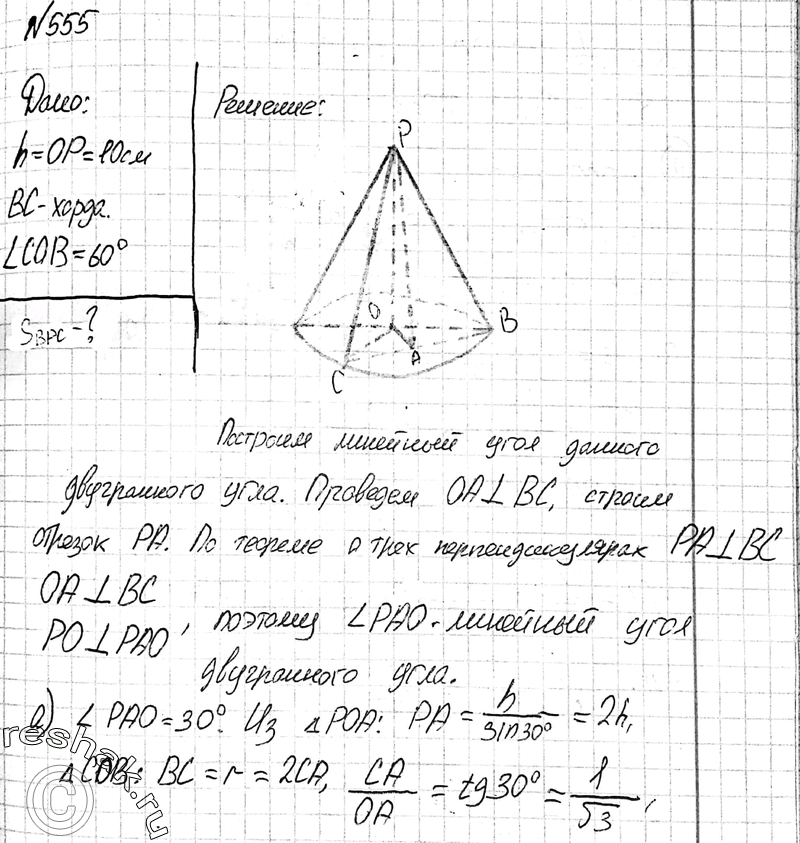 №555
Дано:
Решение:
h=OP=10см
BC-хорда.
∠COB=60°
S_BPC-?
P
O
B
A
C
Построим линейный угол данного
двугранного угла. Проведем OA⊥BC, строим
отрезок PA. По теореме о трех перпендикулярах PA⊥BC
OA⊥BC
PO⊥PAO, поэтому ∠PAO-линейный угол
двугранного угла.
а) ∠PAO=30°. Из △POA: PA = h/sin30° = 2h,
△COB: BC = r = 2CA, CA/OA = tg30° = 1/√3,
reshak.ru
©